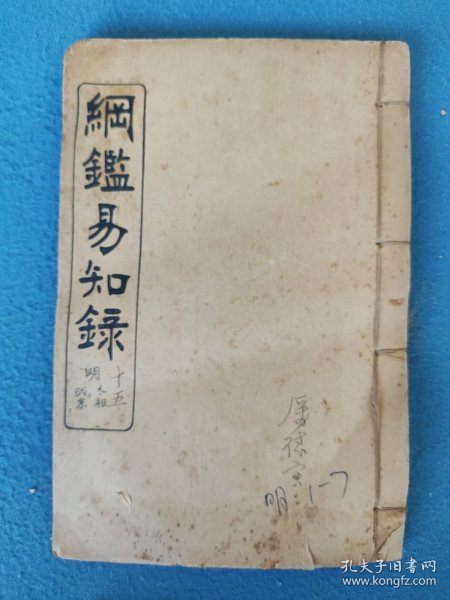 綱鑑易知錄
十五
明
太祖
武宗
明:1-7
孔夫子旧书网
www.kongfz.com